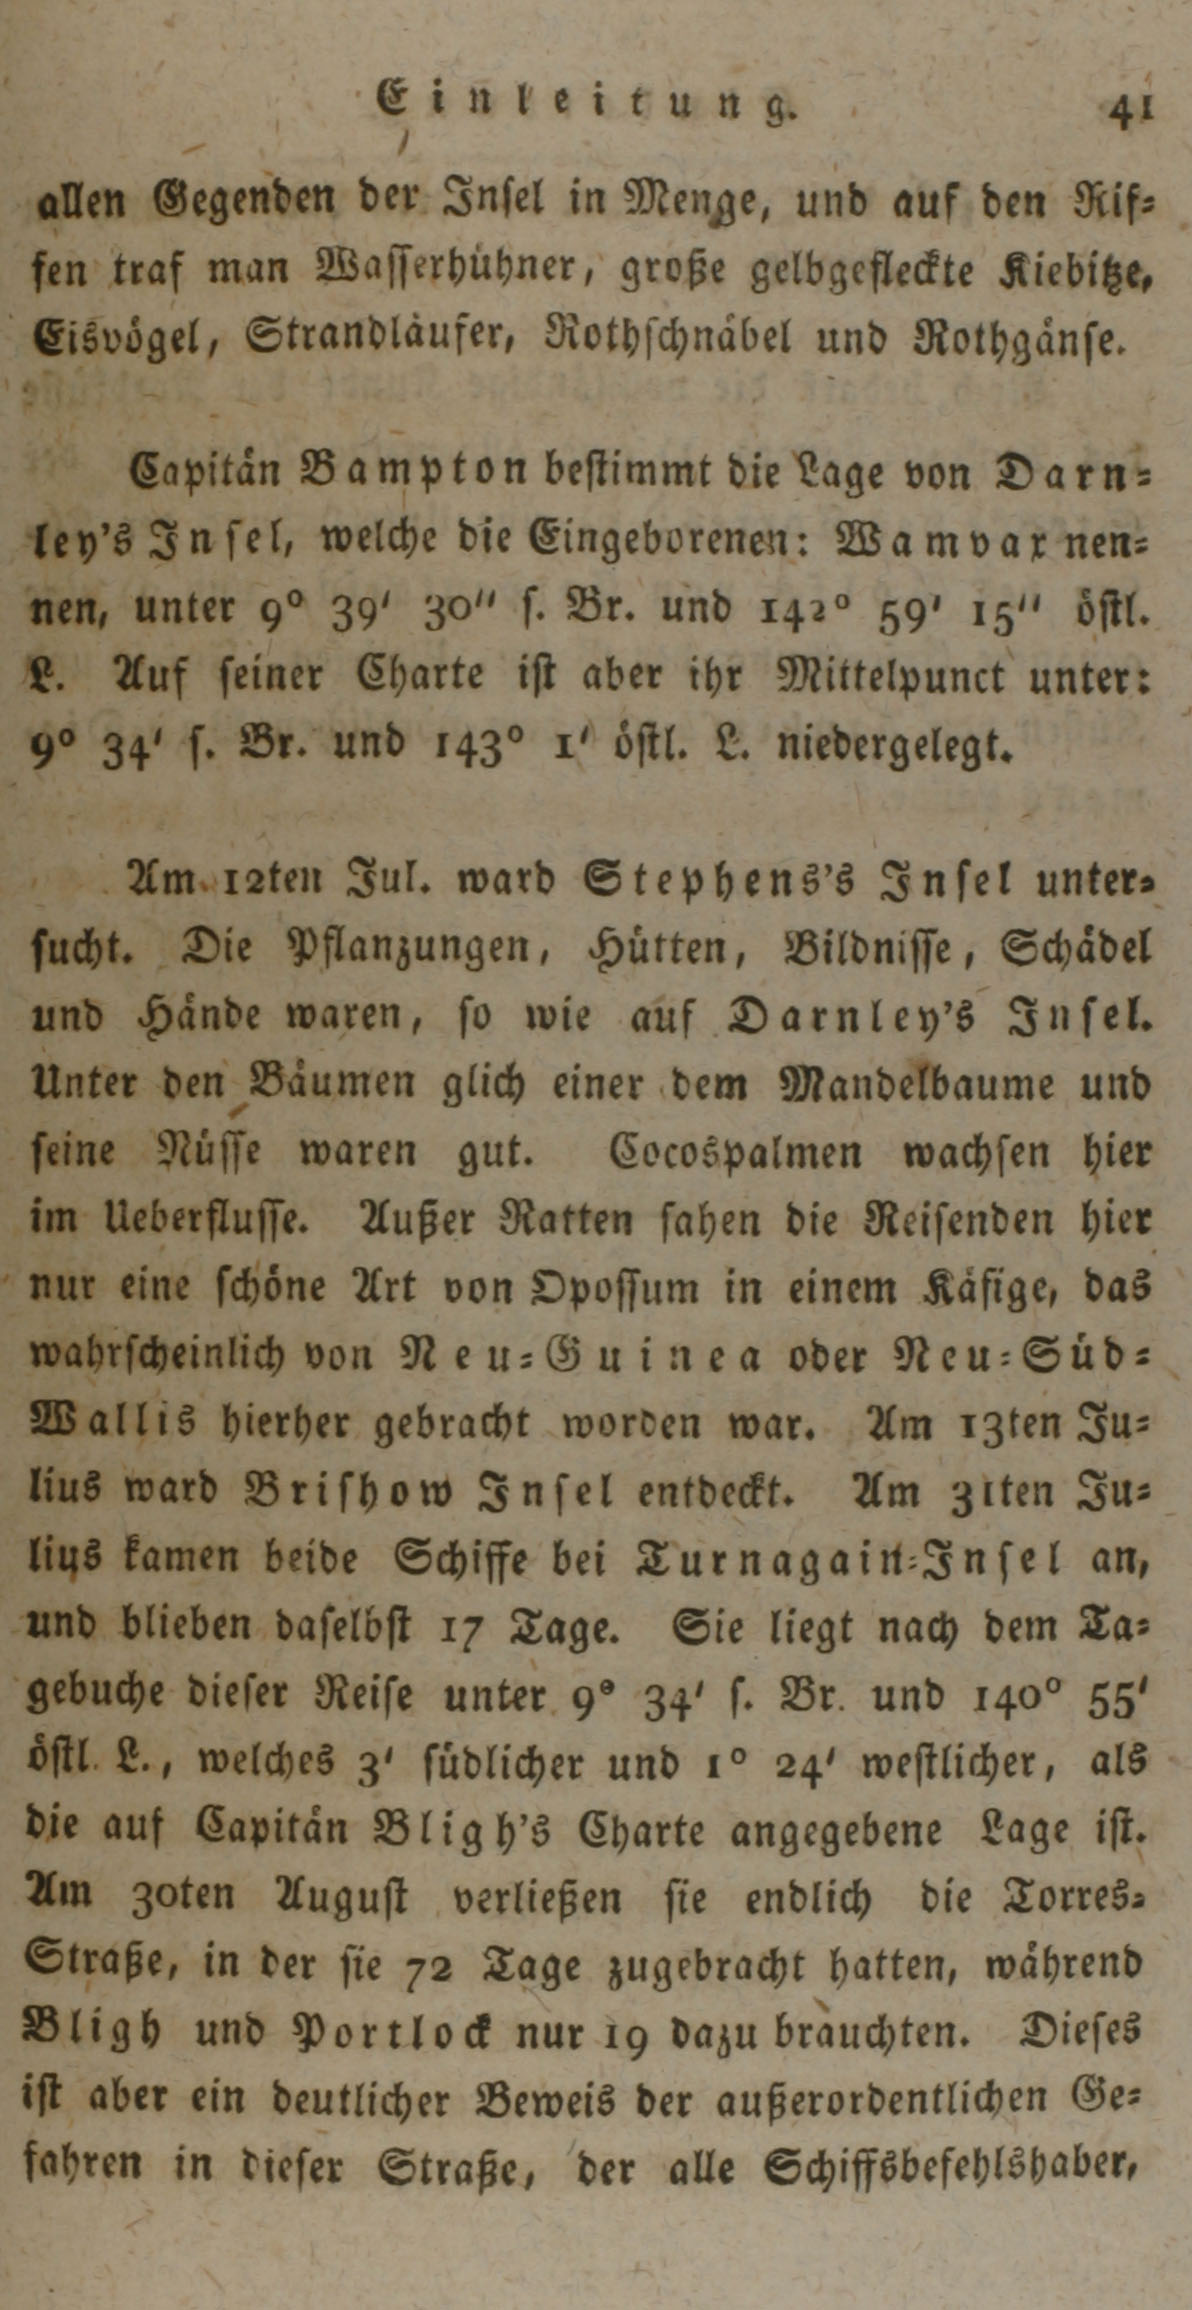 Einleitung. 41
allen Gegenden der Insel in Menge, und auf den Rif-
fen traf man Wasserhühner, große gelbgefleckte Kiebitze,
Eisvögel, Strandläufer, Rothschnäbel und Rothgänse.
Capitän Bampton bestimmt die Lage von Darn-
ley's Insel, welche die Eingeborenen: Wamvax nen-
nen, unter 9° 39' 30'' s. Br. und 142° 59' 15'' östl.
L. Auf seiner Charte ist aber ihr Mittelpunct unter:
9° 34' s. Br. und 143° 1' östl. L. niedergelegt.
Am 12ten Jul. ward Stephens's Insel unter-
sucht. Die Pflanzungen, Hütten, Bildnisse, Schädel
und Hände waren, so wie auf Darnley's Insel.
Unter den Bäumen glich einer dem Mandelbaume und
seine Nüsse waren gut. Cocospalmen wachsen hier
im Ueberflusse. Außer Ratten sahen die Reisenden hier
nur eine schöne Art von Opossum in einem Käfige, das
wahrscheinlich von Neu-Guinea oder Neu-Süd-
Wallis hierher gebracht worden war. Am 13ten Ju-
lius ward Brishow Insel entdeckt. Am 31ten Ju-
lius kamen beide Schiffe bei Turnagain-Insel an,
und blieben daselbst 17 Tage. Sie liegt nach dem Ta-
gebuche dieser Reise unter 9° 34' s. Br. und 140° 55'
östl. L., welches 3' südlicher und 1° 24' westlicher, als
die auf Capitän Bligh's Charte angegebene Lage ist.
Am 30ten August verließen sie endlich die Torres-
Straße, in der sie 72 Tage zugebracht hatten, während
Bligh und Portlock nur 19 dazu brauchten. Dieses
ist aber ein deutlicher Beweis der außerordentlichen Ge-
fahren in dieser Straße, der alle Schiffsbefehlshaber,